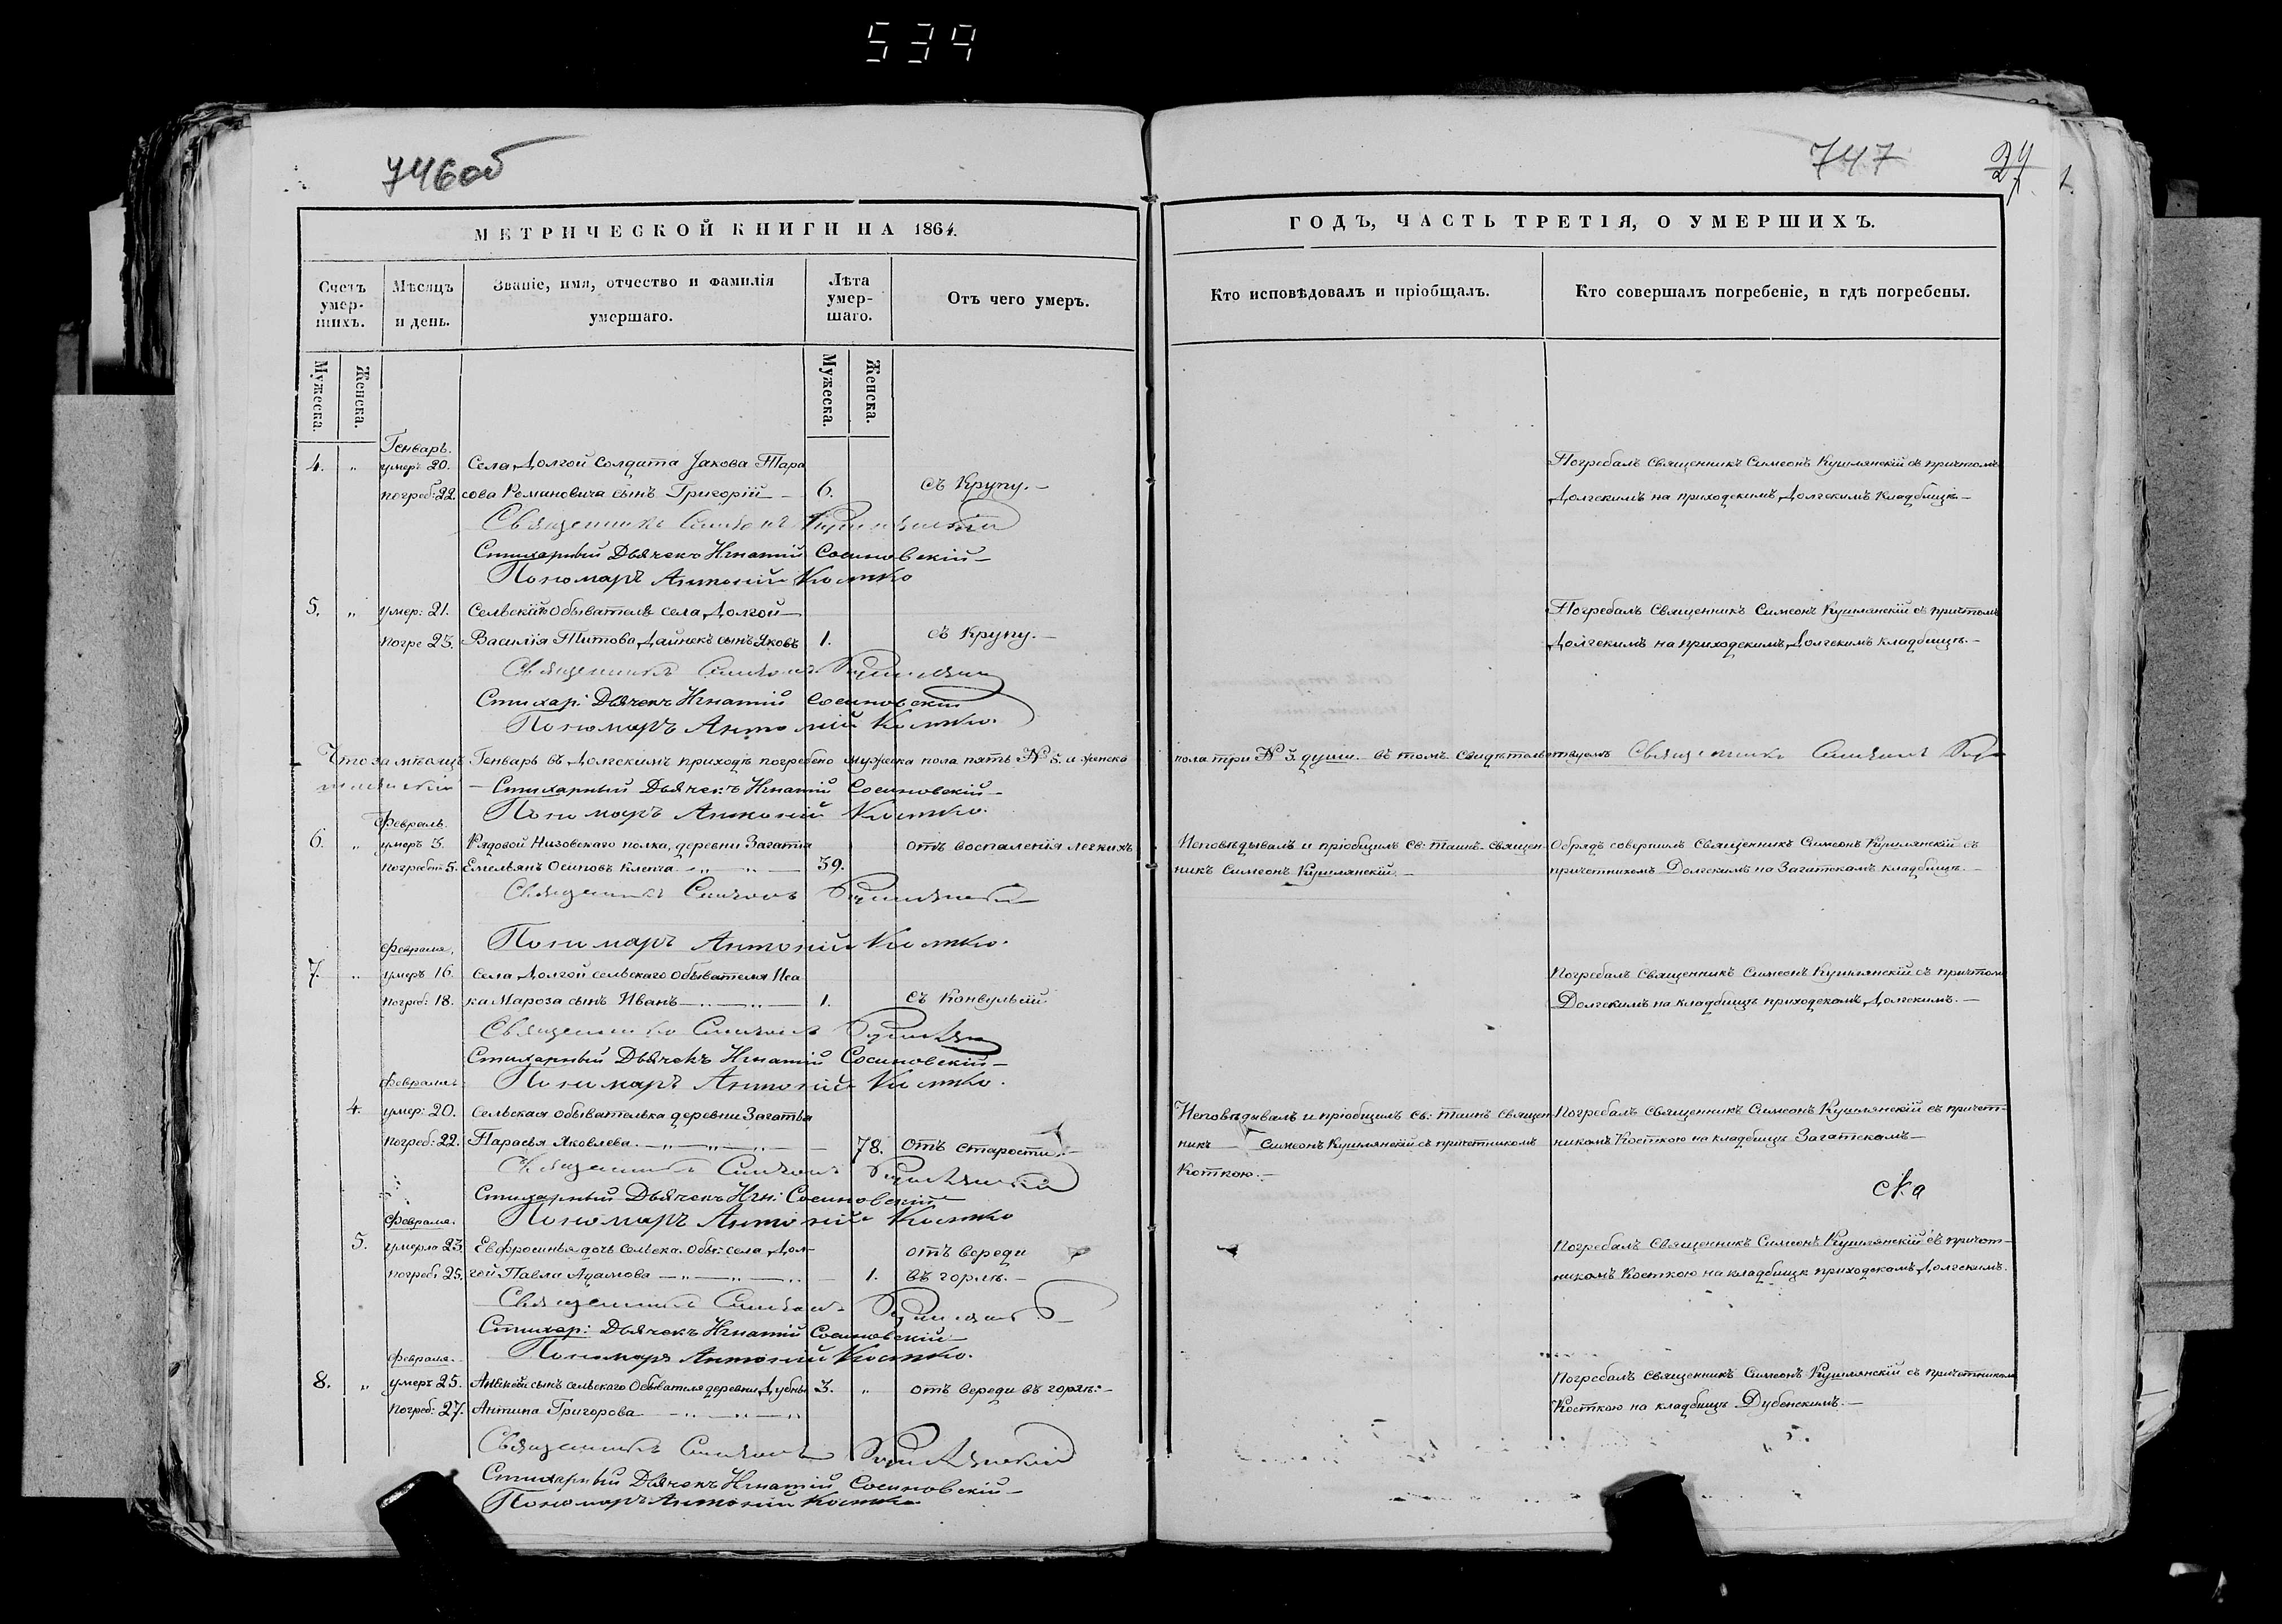 539
746об
747
МЕТРИЧЕСКОЙ КНИГИ НА 1864.
Счетъ умер-
шихъ.
Мужеска.
Женска.
Мѣсяцъ
и день.
Званіе, имя, отчество и фамилія
умершаго.
Лѣта
умер-
шаго.
Мужеска.
Женска.
Отъ чего умеръ.
Генварь.
4. " умеръ 20. Села Долгой солдата Якова Тара
погреб: 22. сова Романовича сынъ Григорій 6. съ Крупу.
Священникъ Симеонъ
Стихарный Дьячекъ Игнатій Сосиновскій
Пономаръ Антоній Костко
5. " умер: 21. Сельскій Обыватель села Долгой
погре 23. Василія Титова Дайнекъ сынъ Яковъ 1. съ Крупу.
Священникъ Симеонъ
Стихар: Дьячекъ Игнатій Сосиновскій
Пономаръ Антоній Костко.
Что за мѣсяцъ Генварь въ Долгскимъ приходѣ погребено мужеска пола пять № 5. и женска
Стихарный Дьячекъ Игнатій Сосиновскій
Февраль. Пономаръ Антоній Костко.
6. " умеръ 3. Рядовой Низовскаго полка, деревни Загатья отъ воспаленія легкихъ
погребѣн 5. Емельянъ Осиповъ Клепча 39.
Священникъ Симеонъ
Февраля. Пономаръ Антоній Костко.
7. " умеръ 16. Села Долгой сельскаго обывателя Иса
погреб: 18. ка Мароза сынъ Иванъ 1. съ Конвульсій
Священникъ Симеонъ
Стихарный Дьячекъ Игнатій Сосиновскій
Февраля. Пономаръ Антоній Костко.
4. умер: 20. Сельская обывателька деревни Загатья
погреб: 22. Парасья Яковлева. 78. отъ старости.
Священникъ Симеонъ
Стихарный Дьячекъ Игн: Сосиновскій
Февраля. Пономаръ Антоній Костко
5. умерла 23. Евфросинья дочь сельска. обы: села Дол- отъ вереди
погреб: 25. гой Павла Адамова 1. въ горлѣ.
Священникъ Симеонъ
Стихар: Дьячекъ Игнатій Сосиновскій
Февраля. Пономаръ Антоній Костко.
8. " умеръ 25. сынъ сельскаго Обывателя деревни Дубны 3. " отъ вереди въ горлѣ.
погреб: 27. Антипа Григорова
Священникъ Симеонъ
Стихарный Дьячекъ Игнатій Сосиновскій
Пономаръ Антоній Костко
ГОДЪ, ЧАСТЬ ТРЕТІЯ, О УМЕРШИХЪ.
Кто исповѣдовалъ и пріобщалъ.
Кто совершалъ погребеніе, и гдѣ погребены.
Погребалъ Священникъ Симеонъ Кушлянскій съ причтомъ
Долгскимъ на приходскимъ Долгскимъ Кладбищѣ
Погребалъ Священникъ Симеонъ Кушлянскій съ причтомъ
Долгскимъ на приходскимъ Долгскимъ кладбищѣ.
пола три № 3. души. въ томъ свидѣтельствуемъ Священникъ Симеонъ
Исповѣдывалъ и пріобщилъ Св: таинъ Священ- Обрядъ совершилъ Священникъ Симеонъ Кушлянскій съ
никъ Симеонъ Кушлянскій. причетникомъ Долгскимъ на Загатскомъ кладбищѣ.
Погребалъ Священникъ Симеонъ Кушлянскій съ причтомъ
Долгскимъ на кладбищѣ приходскомъ Долгскимъ.
Исповѣдывалъ и пріобщилъ Св: таинъ Священ Погребалъ Священникъ Симеонъ Кушлянскій съ причет-
никъ Симеонъ Кушлянскій съ причетникомъ никомъ Косткою на кладбищѣ Загатскомъ
Косткою.
Погребалъ Священникъ Симеонъ Кушлянскій съ причет-
никомъ Косткою на кладбищѣ приходскомъ Долгскимъ.
Погребалъ Священникъ Симеонъ Кушлянскій съ причетникомъ
Косткою на кладбищѣ Дубенскимъ.